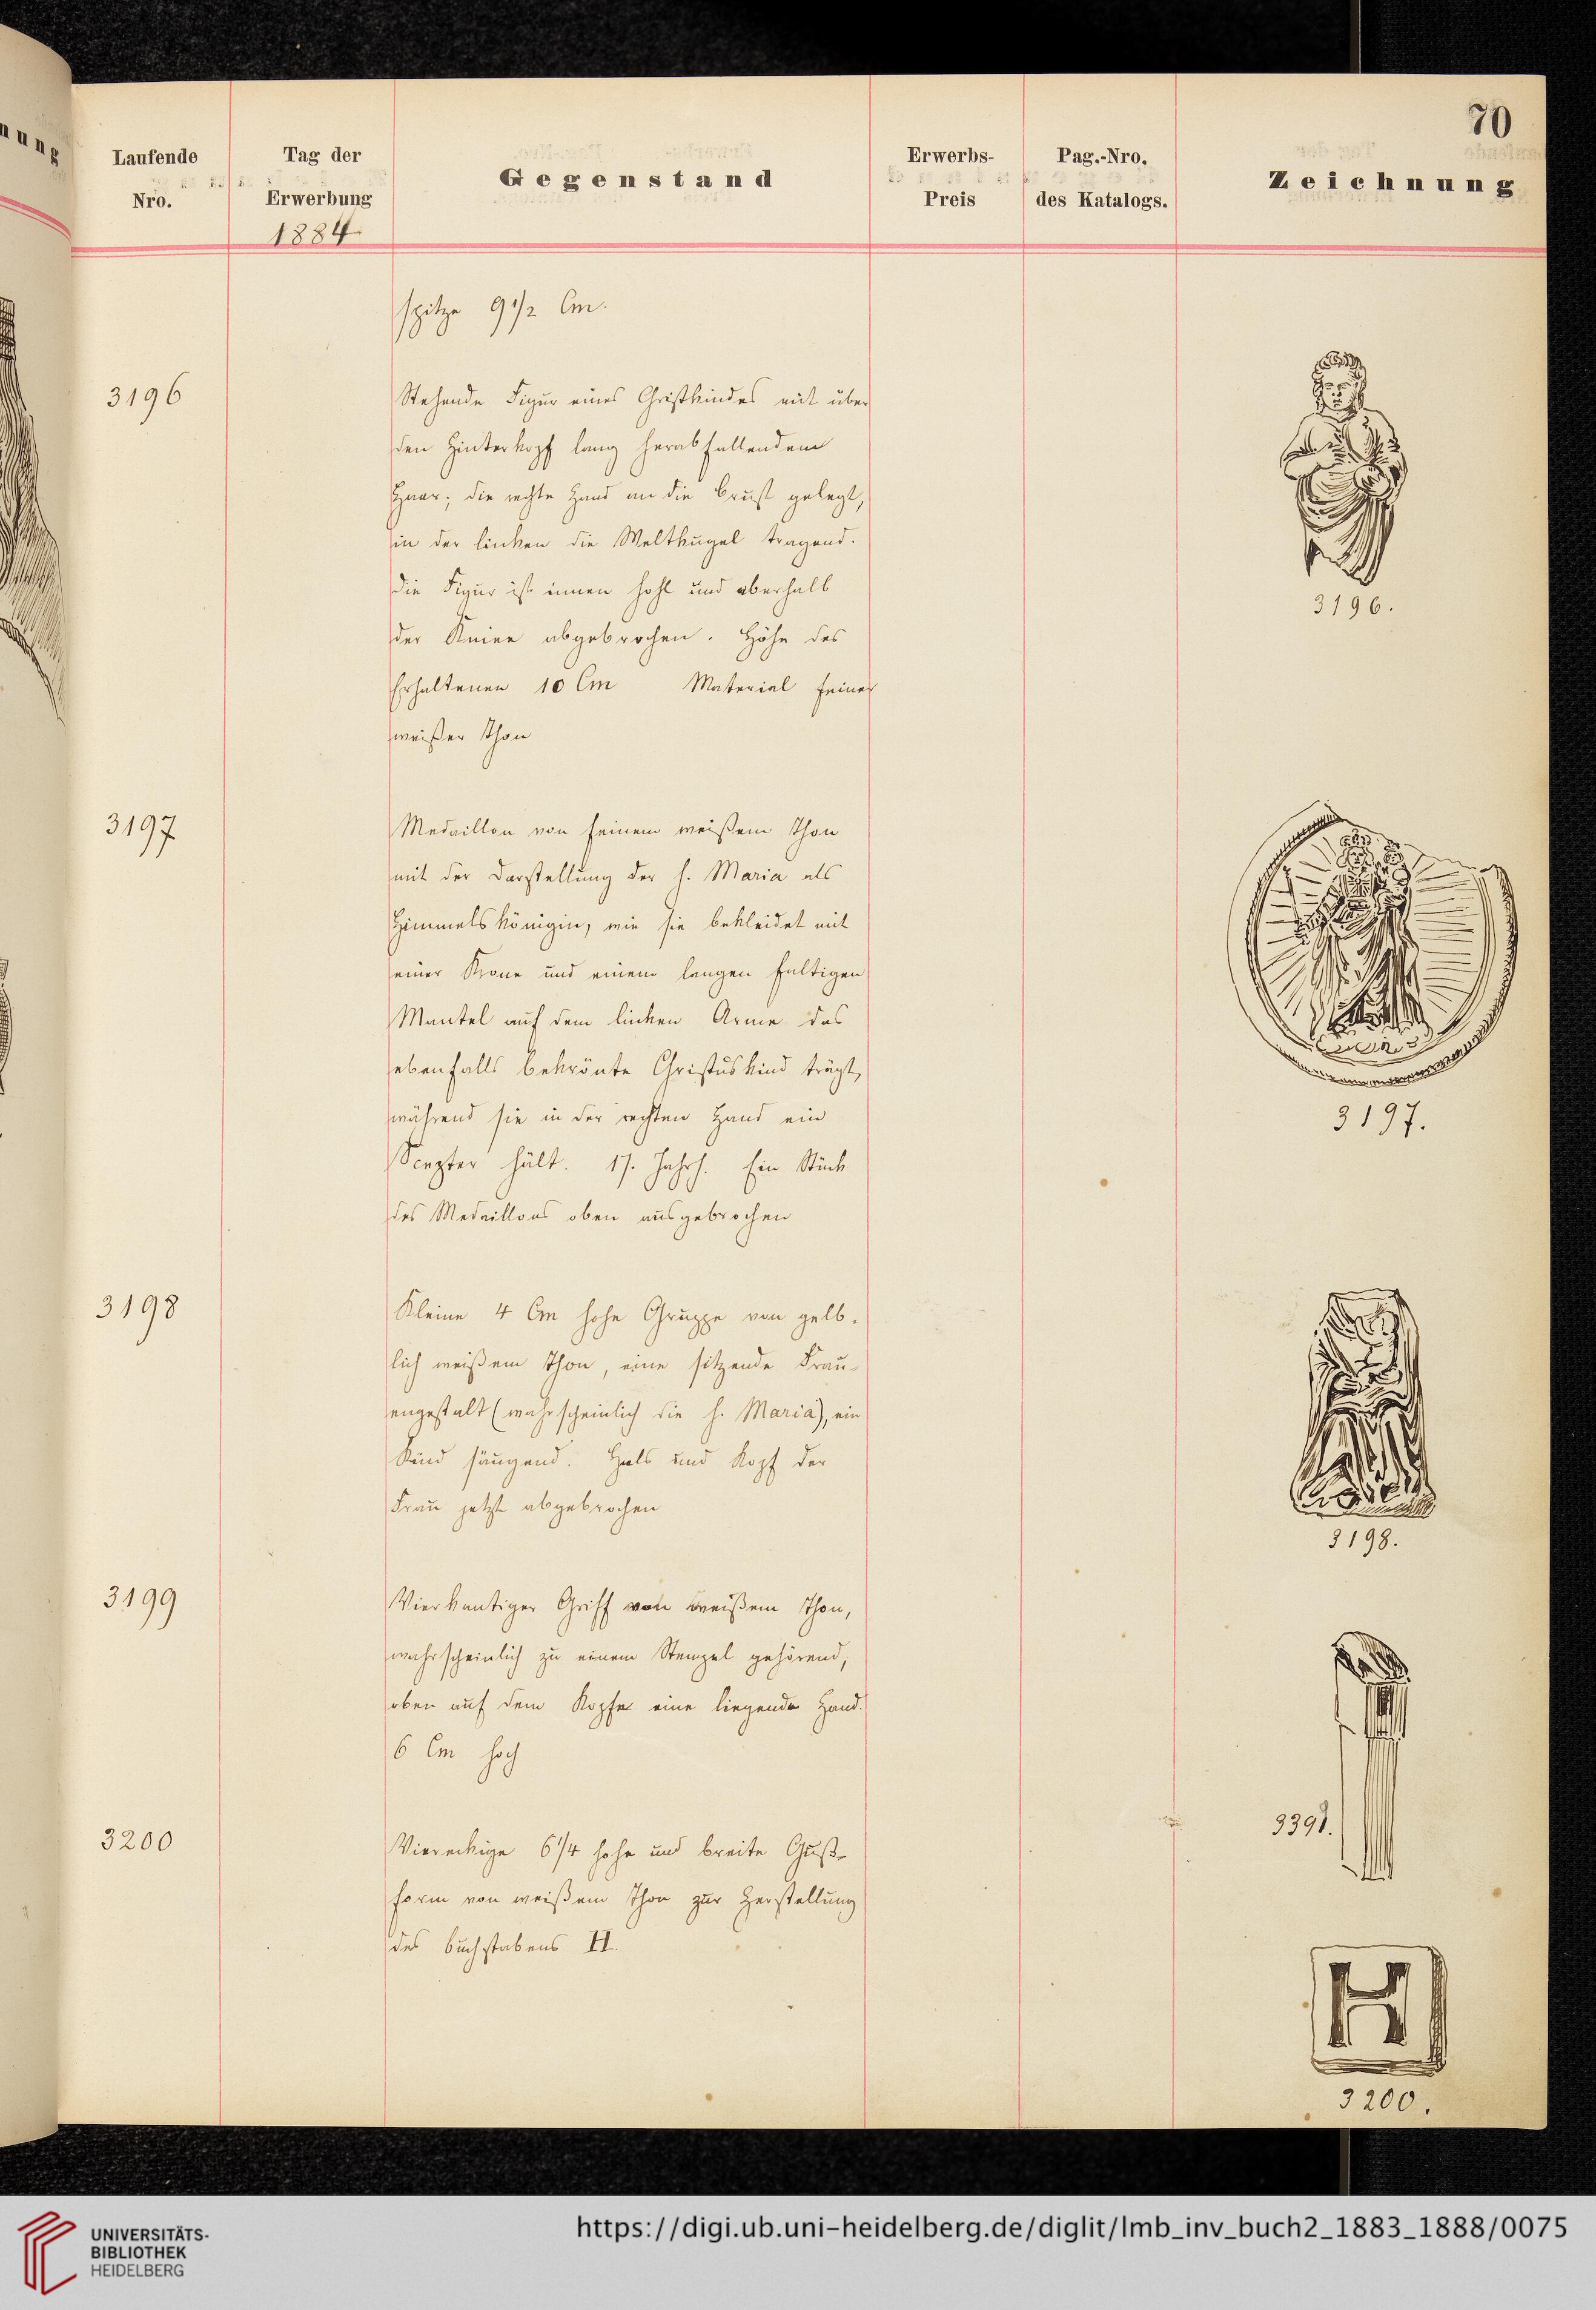 70
Laufende
Nro.
Tag der
Erwerbung
1884
Gegenstand
Erwerbs-
Preis
Pag.-Nro.
des Katalogs.
Zeichnung
nung
spitze 9 1/2 Cm.
3196
Stehende Figur eines Christkindes mit über
den Hinterkopf lang herabfallendem
Haar; die rechte Hand an die Brust gelegt,
in der linken die Weltkugel tragend.
Die Figur ist innen hohl und oberhalb
der Kniee abgebrochen. Höhe des
Erhaltenen 10 Cm Material feiner
weißer Thon
3196.
3197
Medaillon von feinem weißem Thon
mit der Darstellung der h. Maria als
Himmelskönigin, wie sie bekleidet mit
einer Krone und einem langen faltigen
Mantel auf dem linken Arme das
ebenfalls bekrönte Christuskind trägt,
während sie in der rechten Hand ein
Scepter hält. 17. Jahrh. Ein Stück
des Medaillons oben ausgebrochen
3197.
3198
Kleine 4 Cm hohe Gruppe von gelb-
lich weißem Thon, eine sitzende Frau-
engestalt (wahrscheinlich die h. Maria), ein
Kind säugend. Hals und Kopf der
Frau jetzt abgebrochen
3198.
3199
Vierkantiger Griff von weißem Thon,
wahrscheinlich zu einem Stempel gehörend,
oben auf dem Kopfe eine liegende Hand.
6 Cm hoch
3200
Viereckige 6 1/4 hohe und breite Guß-
form von weißem Thon zur Herstellung
des Buchstabens H.
H
3200.
UNIVERSITÄTS-
BIBLIOTHEK
HEIDELBERG
https://digi.ub.uni-heidelberg.de/diglit/lmb_inv_buch2_1883_1888/0075